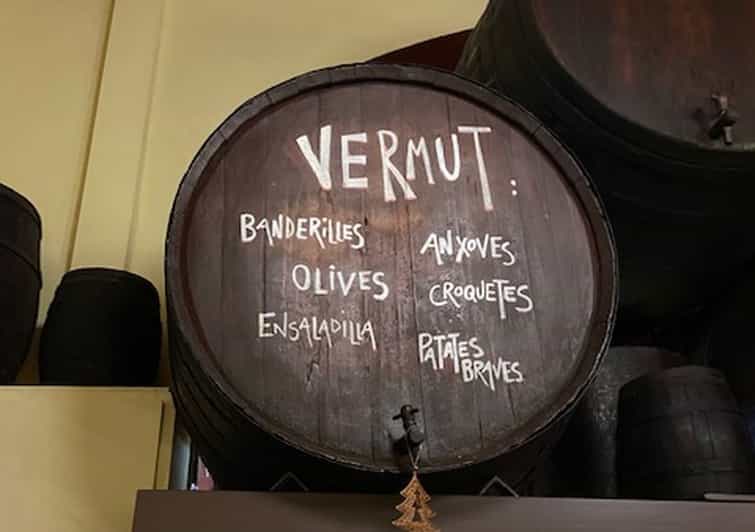 VERMUT:
BANDERILLES
OLIVES
ENSALADILLA
ANXOVES
CROQUETES
PATATES
BRAVES